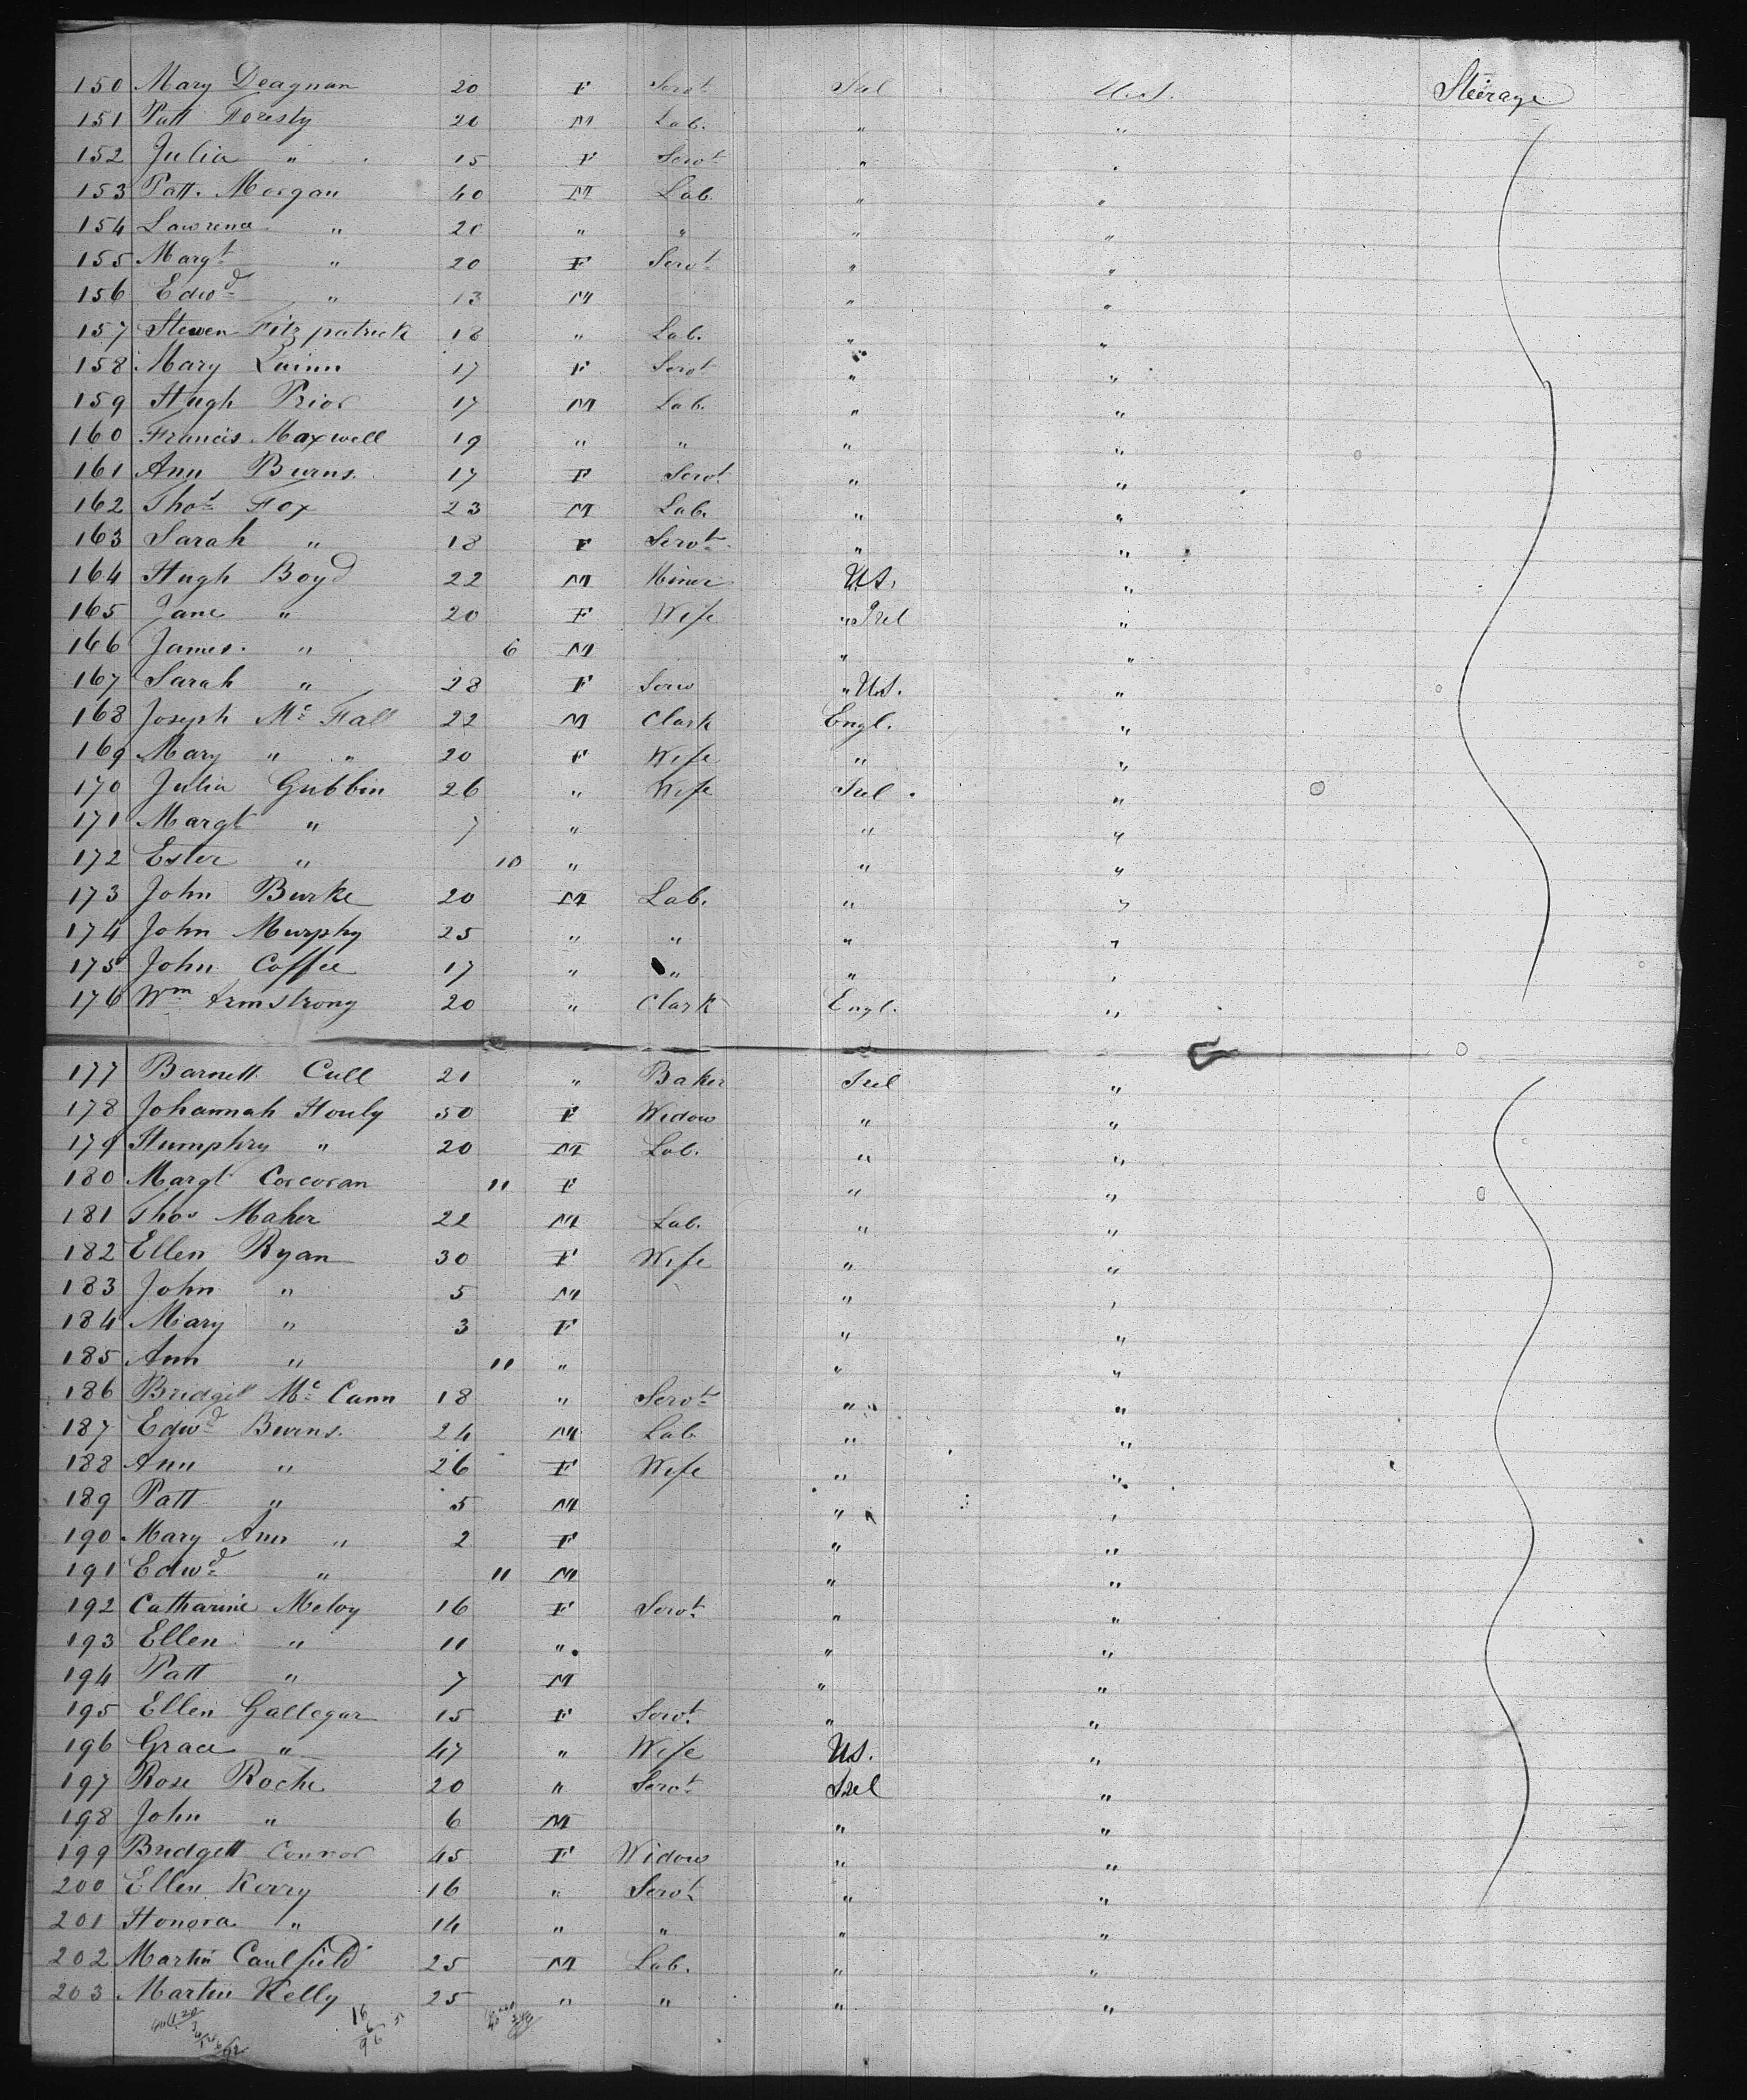 150 Mary Deagnan 20 F Servt Irel U.S. Steerage
151 Patt Foresty 20 M Lab. " "
152 Julia " 15 F Servt " "
153 Patt. Morgan 40 M Lab. " "
154 Lawrence " 20 " " " "
155 Margt " 20 F Servt " "
156 Edwd " 13 M " "
157 Steven Fitzpatrick 18 " Lab. " "
158 Mary Quinn 17 F Servt " "
159 Hugh Prior 17 M Lab. " "
160 Francis Maxwell 19 " " " "
161 Ann Burns. 17 F Servt " "
162 Thos Fox 23 M Lab. " "
163 Sarah " 18 F Servt " "
164 Hugh Boyd 22 M Miner U.S. "
165 Jane " 20 F Wife " Irel "
166 James. " 6 M " "
167 Sarah " 28 F Serv " U.S. "
168 Joseph Mc Fall 22 M Clark Engl. "
169 Mary " " 20 F Wife " "
170 Julia Gubbin 26 " Wife Irel. "
171 Margt " 7 " " "
172 Ester " 10 " " "
173 John Burke 20 M Lab. " "
174 John Murphy 25 " " " "
175 John Coffee 17 " " " "
176 Wm Armstrong 20 " Clark Engl. "
177 Barnett Cull 21 " Baker Irel "
178 Johannah Houly 50 F Widow " "
179 Humphry " 20 M Lab. " "
180 Margt Corcoran 11 F " "
181 Thos Maher 22 M Lab. " "
182 Ellen Ryan 30 F Wife " "
183 John " 5 M " "
184 Mary " 3 F " "
185 Ann " 11 " " "
186 Bridgit Mc Cann 18 " Servt " "
187 Edwd Burns. 24 M Lab " "
188 Ann " 26 F Wife " "
189 Patt " 5 M " "
190 Mary Ann " 2 F " "
191 Edwd " 11 M " "
192 Catharine Meloy 16 F Servt " "
193 Ellen " 11 " " "
194 Patt " 7 M " "
195 Ellen Gallegar 15 F Servt " "
196 Grace " 47 " Wife U.S. "
197 Rose Roche 20 " Servt Irel "
198 John " 6 M " "
199 Bridgett Connor 45 F Widow " "
200 Ellen Kerry 16 " Servt " "
201 Honora " 14 " " " "
202 Martin Caulfield 25 M Lab. " "
203 Martin Kelly 25 " " " "
16
6
96